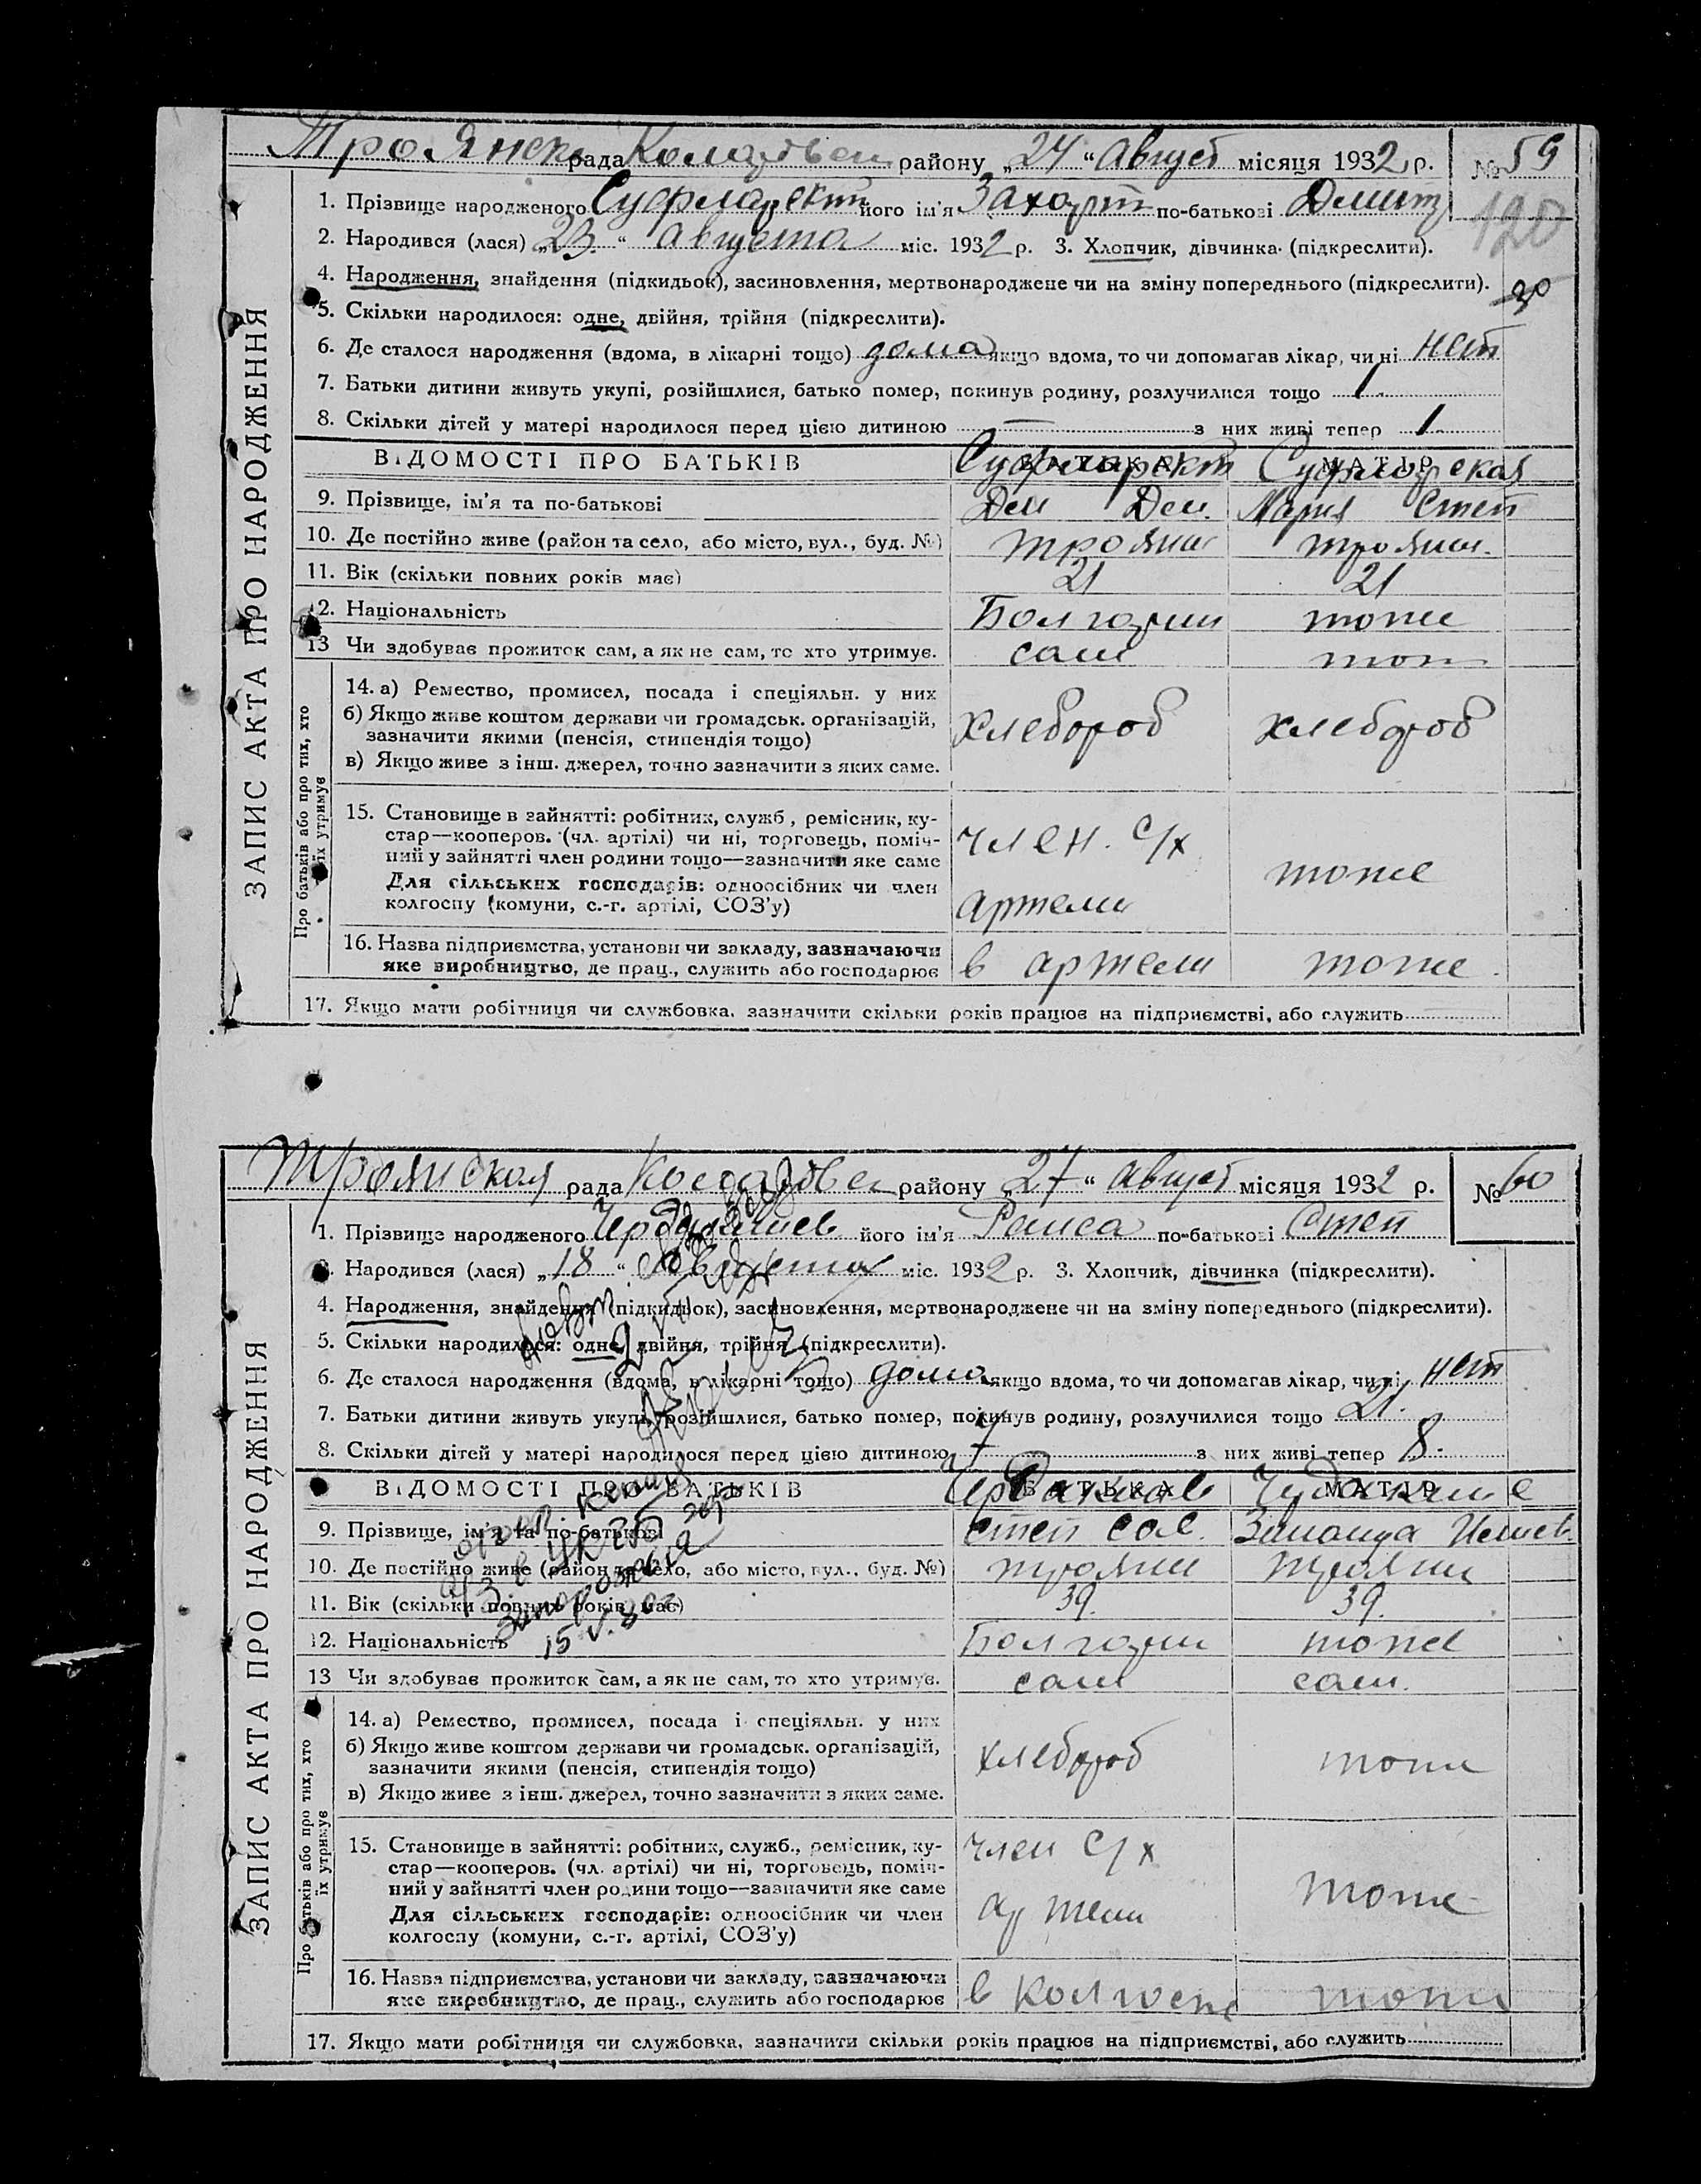 Троянск рада Коларовск району „24“ Август місяця 1932 р. № 59
120
1. Прізвище народженого його ім'я Захарий по-батькові Дмит
2. Народився (лася) „23“ августа міс. 1932 р. 3. Хлопчик, дівчинка (підкреслити).
4. Народження, знайдення (підкидьок), засиновлення, мертвонароджене чи на зміну попереднього (підкреслити).
30
5. Скільки народилося: одне, двійня, трійня (підкреслити).
6. Де сталося народження (вдома, в лікарні тощо) дома якщо вдома, то чи допомагав лікар, чи ні нет
7. Батьки дитини живуть укупі, розійшлися, батько помер, покинув родину, розлучилися тощо 1.
8. Скільки дітей у матері народилося перед цією дитиною — з них живі тепер 1.
ВІДОМОСТІ ПРО БАТЬКІВ БАТЬКА МАТІР
9. Прізвище, ім'я та по-батькові Дем Дем. Мария Степ
10. Де постійно живе (район та село, або місто, вул., буд. №) Трояны Трояны.
11. Вік (скільки повних років має) 21 21
12. Національність Болгарин тоже
13 Чи здобуває прожиток сам, а як не сам, то хто утримує. сам
ЗАПИС АКТА ПРО НАРОДЖЕННЯ
Про батьків або про тих, хто їх утримує
14. а) Ремество, промисел, посада і спеціяльн. у них
б) Якщо живе коштом держави чи громадськ. організацій,
зазначити якими (пенсія, стипендія тощо) хлебороб хлебороб
в) Якщо живе з інш. джерел, точно зазначити з яких саме.
15. Становище в зайнятті: робітник, служб., ремісник, ку-
стар—кооперов. (чл. артілі) чи ні, торговець, поміч- член. с/х
ний у зайнятті член родини тощо—зазначити яке саме тоже
Для сільських господарів: одноосібник чи член
колгоспу (комуни, с.-г. артілі, СОЗ'у) артели
16. Назва підприємства, установи чи закладу, зазначаючи
яке виробництво, де прац., служить або господарює в артели тоже
17. Якщо мати робітниця чи службовка, зазначити скільки років працює на підприємстві, або служить
Троянская рада Коларовск району „27“ Август місяця 1932 р. № 60
1. Прізвище народженого його ім'я Раиса по-батькові Степ
2. Народився (лася) „18“ Августа міс. 1932 р. 3. Хлопчик, дівчинка (підкреслити).
4. Народження, знайдення (підкидьок), засиновлення, мертвонароджене чи на зміну попереднього (підкреслити).
5. Скільки народилося: одне, двійня, трійня (підкреслити).
6. Де сталося народження (вдома, в лікарні тощо) дома якщо вдома, то чи допомагав лікар, чи ні нет
7. Батьки дитини живуть укупі, розійшлися, батько помер, покинув родину, розлучилися тощо 21.
8. Скільки дітей у матері народилося перед цією дитиною 7 з них живі тепер 8.
ВІДОМОСТІ ПРО БАТЬКІВ БАТЬКА МАТІР
9. Прізвище, ім'я та по-батькові Степ Сав.
10. Де постійно живе (район та село, або місто, вул., буд. №) Трояны Трояны
11. Вік (скільки повних років має) 39. 39.
12. Національність Болгарин тоже
13 Чи здобуває прожиток сам, а як не сам, то хто утримує. сам сам.
Запорожья
15 V. 80г
ЗАПИС АКТА ПРО НАРОДЖЕННЯ
Про батьків або про тих, хто їх утримує
14. а) Ремество, промисел, посада і спеціяльн. у них
б) Якщо живе коштом держави чи громадськ. організацій,
зазначити якими (пенсія, стипендія тощо) хлебороб тоже
в) Якщо живе з інш. джерел, точно зазначити з яких саме.
15. Становище в зайнятті: робітник, служб., ремісник, ку- член с/х
стар—кооперов. (чл. артілі) чи ні, торговець, поміч-
ний у зайнятті член родини тощо—зазначити яке саме тоже
Для сільських господарів: одноосібник чи член артели
колгоспу (комуни, с.-г. артілі, СОЗ'у)
16. Назва підприємства, установи чи закладу, зазначаючи
яке виробництво, де прац., служить або господарює в колгоспе тоже
17. Якщо мати робітниця чи службовка, зазначити скільки років працює на підприємстві, або служить